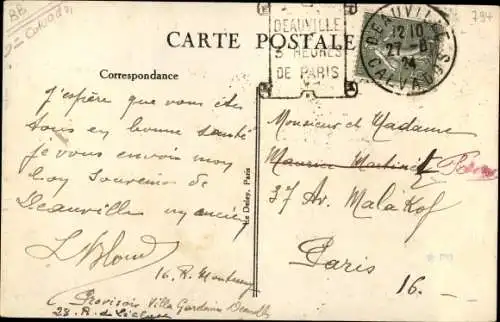 BB
Calvados
794
CARTE POSTALE
DEAUVILLE
3 HEURES
DE PARIS
DEAUVILLE
12 10
27-8
24
CALVADOS
Correspondance
J'espère que vous êtes
tous en bonne santé
je vous envois mon
bon souvenir de
Deauville
L Blond
16. R.
Provisoir Villa Deauville
28. R. de
Monsieur et Madame
Maurice Martinet
37 Av. Malakof
Paris
16.